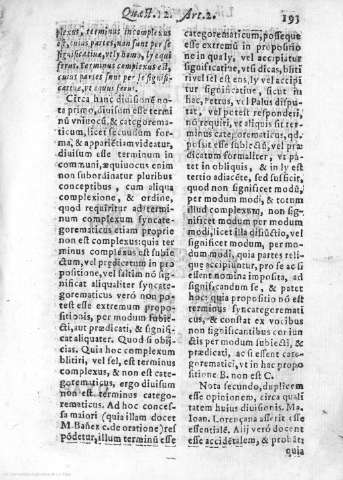 Quæst. 2. Art. 2. 193
plexus, terminus incomplexus
est, cuius partes, non sunt per se
significatiuæ, vt ly homo, ly equi
ferus. Terminus complexus est,
cuius partes sunt per se signifi-
catiuæ, vt equus ferus.
Circa hanc diuisionē no-
ta primo, diuisum esse termi
nū vniuocū, & categorema-
ticum, licet secundum for-
ma, & apparētiam videatur,
diuisum esse terminum in
communi, æquiuocus enim
non subordinatur pluribus
conceptibus, cum aliqua
complexione, & ordine,
quod requiritur ad termi-
num complexum syncate-
gorematicus etiam proprie
non est complexus: quia ter
minus complexus est subie-
ctum, vel prædicatum in pro
positione, vel saltim nō signi-
ficat aliqualiter syncatego-
rematicus verò non po-
test esse extremum propo-
sitionis, per modum subie-
cti, aut prædicati, & signifi-
cat aliquater. Quod si obii-
cias. Quia hoc complexum
blitiri, vel fel, est terminus
complexus, & non est cate-
gorematicus, ergo diuisum
non est terminus catego-
rematicus. Ad hoc conces-
sa maiori (quia illam docet
M. Bañez c. de oratione) res
pōdetur, illum terminū esse
categorematicum, posseque
esse extremū in propositio
ne in qualy, vel accipiatur
significatiue, vt si dicas, blitiri
vel fel est ens, ly vel accipi
tur significatiue, sicut in
hac, Petrus, vel Palus dispu
tat, vel potest responderi,
nō requiri, vt aliquis sit ter-
minus categorematicus, qd
possit esse subiectū, vel præ
dicatum formaliter, vt pa-
tet in obliquis, & in ly est
tertio adiacēte, sed sufficit,
quod non significet modū,
per modum modi, & totum
illud complexum, non sig-
nificat modum per modum
modi, licet illa disiūctio, vel
significet modum, per mo-
dum modi, quia partes relique
accipiuntur, pro se ac si
essent nomina imposita, ad
significandum se, & patet
hoc: quia propositio nō est
terminus syncategoremati
cus, & constat ex vocibus
non significantibus coniun
ctis per modum subiecti, &
prædicati, ac si essent cate-
gorematici, vt in hac propo
sitione B. non est C.
Nota secundo, duplicem
esse opionem, circa quali
tatem huius diuisionis. Ma.
Ioan. Lorençana asserit esse
essentialē. Alij verò docent
esse accidētalem, & probāt
quia